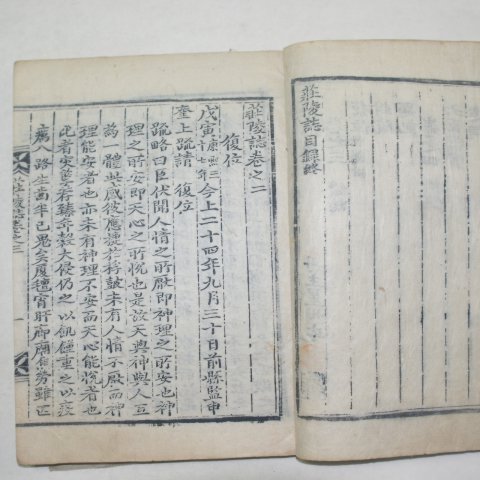 莊陵誌目錄終
莊陵誌卷之二
復位
戊寅康熙三十七年今上二十四年九月三十日前縣監申
奎上疏請 復位
疏略曰臣伏聞人情之所厭即神理之所安也神
理之所安即天心之所悅也是故天與神與人互
為一體與感彼應捷於桴鼓未有人情不厭而神
理能安者也亦未有神理不安而天心能悅者也
大侵仍之以飢饉重之以疫
癘八路生齒半已鬼矣
莊陵誌卷之二